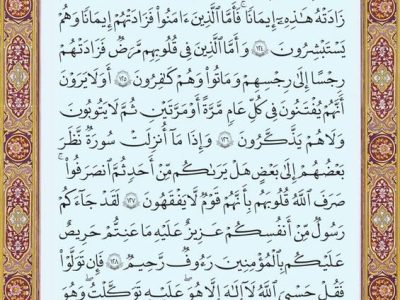 زَادَتْهُ هَٰذِهِۦٓ إِيمَٰنًا ۚ فَأَمَّا ٱلَّذِينَ ءَامَنُوا۟ فَزَادَتْهُمْ إِيمَٰنًا وَهُمْ
يَسْتَبْشِرُونَ ١٢٤ وَأَمَّا ٱلَّذِينَ فِى قُلُوبِهِم مَّرَضٌ فَزَادَتْهُمْ
رِجْسًا إِلَىٰ رِجْسِهِمْ وَمَاتُوا۟ وَهُمْ كَٰفِرُونَ ١٢٥ أَوَلَا يَرَوْنَ
أَنَّهُمْ يُفْتَنُونَ فِى كُلِّ عَامٍ مَّرَّةً أَوْ مَرَّتَيْنِ ثُمَّ لَا يَتُوبُونَ
وَلَا هُمْ يَذَّكَّرُونَ ١٢٦ وَإِذَا مَآ أُنزِلَتْ سُورَةٌ نَّظَرَ
بَعْضُهُمْ إِلَىٰ بَعْضٍ هَلْ يَرَىٰكُم مِّنْ أَحَدٍ ثُمَّ ٱنصَرَفُوا۟ ۚ
صَرَفَ ٱللَّهُ قُلُوبَهُم بِأَنَّهُمْ قَوْمٌ لَّا يَفْقَهُونَ ١٢٧ لَقَدْ جَآءَكُمْ
رَسُولٌ مِّنْ أَنفُسِكُمْ عَزِيزٌ عَلَيْهِ مَا عَنِتُّمْ حَرِيصٌ
عَلَيْكُم بِٱلْمُؤْمِنِينَ رَءُوفٌ رَّحِيمٌ ١٢٨ فَإِن تَوَلَّوْا۟
فَقُلْ حَسْبِىَ ٱللَّهُ لَآ إِلَٰهَ إِلَّا هُوَ ۖ عَلَيْهِ تَوَكَّلْتُ ۖ وَهُوَ